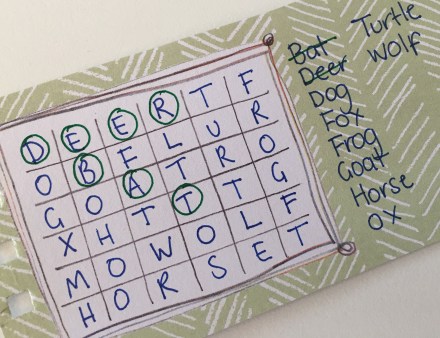 D E E R T F
O B F L U R
G O A T R O
X H T T T G
M O W O L F
H O R S E T
Bat
Deer
Dog
Fox
Frog
Goat
Horse
OX
Turtle
Wolf